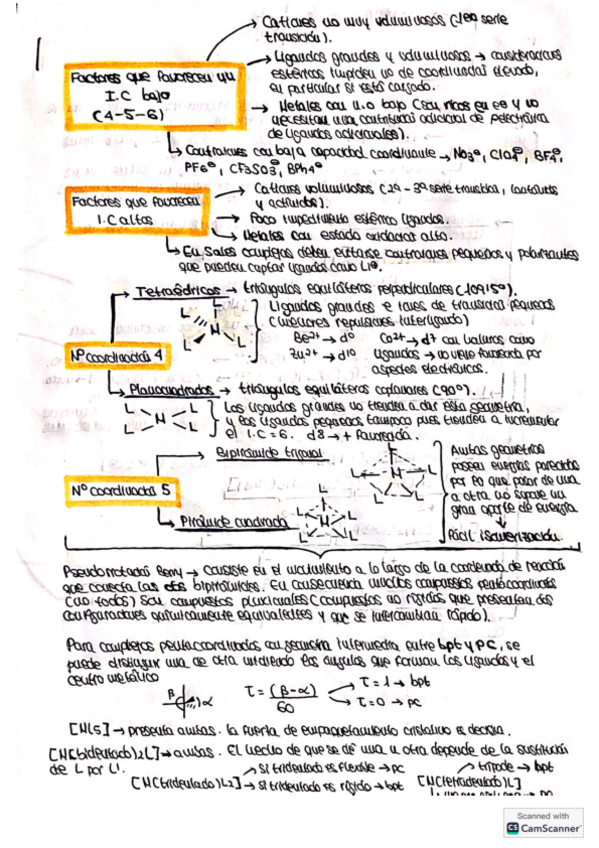 → Cationes no muy voluminosos (1ea serie
transición).
→ Ligandos grandes y voluminosos → consideraciones
estéricas impiden no de coordinación elevado,
en particular si están cargado.
Factores que favorecen un
I.C bajo
(4-5-6)
→ Metales con n.o bajo (son ricos en e⊖ y no
necesitan una contribución adicional de electrónica
de ligandos adicionales).
→ Contraiones con baja capacidad coordinante → NO3⊖, ClO4⊖, BF4⊖,
PF6⊖, CF3SO3⊖, BPh4⊖
Factores que favorecen
I.C altos
→ Cationes voluminosos (2ª - 3ª serie transición, lantánidos
y actínidos).
→ Poco impedimento estérico ligandos.
→ Metales con estado oxidación alto.
→ En sales complejas deben evitarse contraiones pequeños y polarizantes
que pueden captar ligandos como Li⊕.
→ Tetraédricos → triángulos equiláteros perpendiculares (109'5º).
L L L L M
Ligandos grandes e iones de transición pequeños
(menores repulsiones interligando)
Be2+ → d0 Co2+ → d7 con haluros como
Zn2+ → d10 ligandos → no viene favorecida por
aspectos electrónicos.
Nº coordinación 4
→ Planocuadrados → triángulos equiláteros coplanares (90º).
L L M L L
Los ligandos grandes no tienden a dar esta geometría,
y los ligandos pequeños tampoco pues tienden a incrementar
el I.C = 6. d8 → + favorecida.
→ Bipirámide trigonal
Nº coordinación 5
→ Pirámide cuadrada
Ambas geometrías
poseen energías parecidas
por lo que pasar de una
a otra no supone un
gran aporte de energía
↓
Fácil isomerización.
Pseudorrotación Berry → consiste en el movimiento a lo largo de la coordenada de reacción
que conecta las dos bipirámides. En consecuencia muchos compuestos pentacoordinados
(no todos) son compuestos fluxionales (compuestos no rígidos que presentan dos
configuraciones químicamente equivalentes y que se intercambian rápido).
Para complejos pentacoordinados con geometría intermedia entre bpt y PC, se
puede distinguir una de otra midiendo los ángulos que forman los ligandos y el
centro metálico
β α τ = (β-α) / 60 → τ = 1 → bpt
→ τ = 0 → pc
[ML5] → presenta ambas. La fuerza de empaquetamiento cristalino es decisiva.
[M(bidentado)2L] → ambas. El hecho de que se dé una u otra depende de la sustitución
de L por L'.
[M(tridentado)L2] → si tridentado es flexible → pc
→ si tridentado es rígido → bpt
[M(tetradentado)L]
→ trípode → bpt